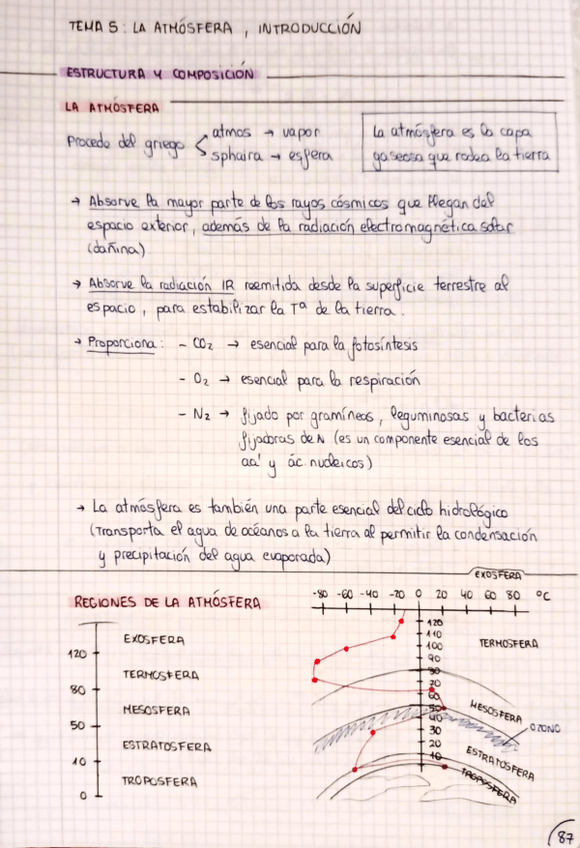 TEMA 5: LA ATMÓSFERA, INTRODUCCIÓN
ESTRUCTURA Y COMPOSICIÓN
LA ATMÓSFERA
Procede del griego
atmos → vapor
sphaira → esfera
La atmósfera es la capa
gaseosa que rodea la tierra
→ Absorve la mayor parte de los rayos cósmicos que llegan del
espacio exterior, además de la radiación electromagnética solar
(dañina)
→ Absorve la radiación IR reemitida desde la superficie terrestre al
espacio, para estabilizar la Tª de la tierra.
→ Proporciona: - CO₂ → esencial para la fotosíntesis
- O₂ → esencial para la respiración
- N₂ → fijado por gramíneos, leguminosas y bacterias
fijadoras de N (es un componente esencial de los
aa' y ác. nucleicos)
→ La atmósfera es también una parte esencial del ciclo hidrológico
(Transporta el agua de océanos a la tierra al permitir la condensación
y precipitación del agua evaporada)
REGIONES DE LA ATMÓSFERA
EXOSFERA
120
TERMOSFERA
80
MESOSFERA
50
ESTRATOSFERA
10
TROPOSFERA
0
EXOSFERA
-80 -60 -40 -20 0 20 40 60 80 ºC
120
110
100
90
80
70
60
50
40
30
20
10
TERMOSFERA
MESOSFERA
OZONO
ESTRATOSFERA
TROPOSFERA
87